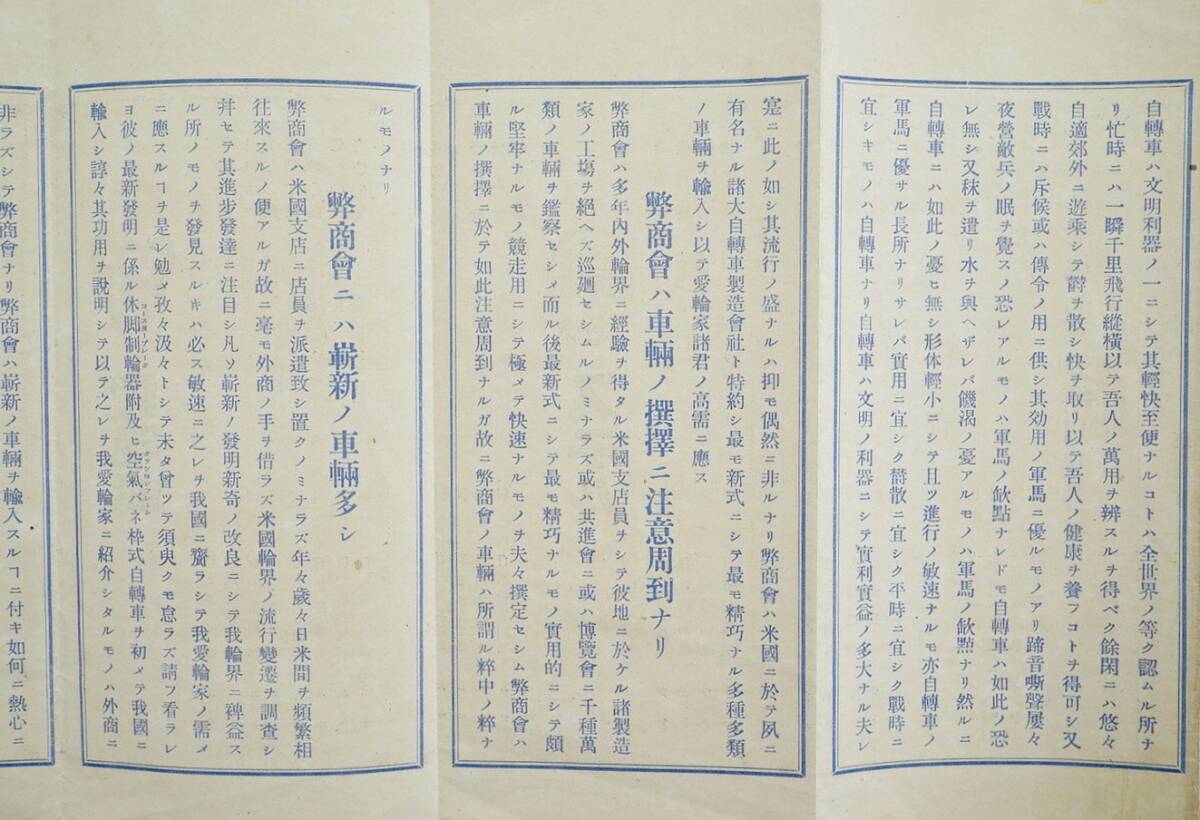 自轉車ハ文明利器ノ一ニシテ其輕快至便ナルコトハ全世界ノ等ク認ムル所ナ
リ忙時ニハ一瞬千里飛行縱橫以テ吾人ノ萬用ヲ辨スルヲ得ベク餘閑ニハ悠々
自適郊外ニ遊乘シテ欝ヲ散シ快ヲ取リ以テ吾人ノ健康ヲ養フコトヲ得可シ又
戰時ニハ斥候或ハ傳令ノ用ニ供シ其効用ノ軍馬ニ優ルモノアリ蹄音嘶聲屢々
夜營敵兵ノ眠ヲ覺スノ恐レアルモノハ軍馬ノ缺點ナレドモ自轉車ハ如此ノ恐
レ無シ又秣ヲ遣リ水ヲ與ヘザレバ饑渴ノ憂アルモノハ軍馬ノ缺點ナリ然ルニ
自轉車ニハ如此ノ憂ヒ無シ形体輕小ニシテ且ツ進行ノ敏速ナルモ亦自轉車ノ
軍馬ニ優サル長所ナリサレバ實用ニ宜シク欝散ニ宜シク平時ニ宜シク戰時ニ
宜シキモノハ自轉車ナリ自轉車ハ文明ノ利器ニシテ實利實益ノ多大ナル夫レ
寔ニ此ノ如シ其流行ノ盛ナルハ抑モ偶然ニ非ルナリ弊商會ハ米國ニ於テ夙ニ
有名ナル諸大自轉車製造會社ト特約シ最モ新式ニシテ最モ精巧ナル多種多類
ノ車輛ヲ輸入シ以テ愛輪家諸君ノ高需ニ應ス
弊商會ハ車輛ノ撰擇ニ注意周到ナリ
弊商會ハ多年內外輪界ニ經驗ヲ得タル米國支店員ヲシテ彼地ニ於ケル諸製造
家ノ工塲ヲ絕ヘズ巡廻セシムルノミナラズ或ハ共進會ニ或ハ博覽會ニ千種萬
類ノ車輛ヲ鑑察セシメ而ル後最新式ニシテ最モ精巧ナルモノ實用的ニシテ頗
ル堅牢ナルモノ競走用ニシテ極メテ快速ナルモノヲ夫々撰定セシム弊商會ハ
車輛ノ撰擇ニ於テ如此注意周到ナルガ故ニ弊商會ノ車輛ハ所謂ル粹中ノ粹ナ
ルモノナリ
弊商會ニハ嶄新ノ車輛多シ
弊商會ハ米國支店ニ店員ヲ派遣致シ置クノミナラズ年々歲々日米間ヲ頻繁相
往來スルノ便アルガ故ニ毫モ外商ノ手ヲ借ラズ米國輪界ノ流行變遷ヲ調査シ
幷セテ其進步發達ニ注目シ凡ソ嶄新ノ發明新奇ノ改良ニシテ我輪界ニ裨益ス
ル所ノモノヲ發見スルキハ必ス敏速ニ之レヲ我國ニ齎ラシテ我愛輪家ノ需メ
ニ應スルヿヲ是レ勉メ孜々汲々トシテ未タ曾ツテ須臾クモ怠ラズ請フ看ラレ
ヨ彼ノ最新發明ニ係ル休脚制輪器附及ヒ空氣バネ枠式自轉車ヲ初メテ我國ニ
輸入シ諄々其功用ヲ說明シテ以テ之レヲ我愛輪家ニ紹介シタルモノハ外商ニ
非ラズシテ弊商會ナリ弊商會ハ嶄新ノ車輛ヲ輸入スルヿニ付キ如何ニ熱心ニ